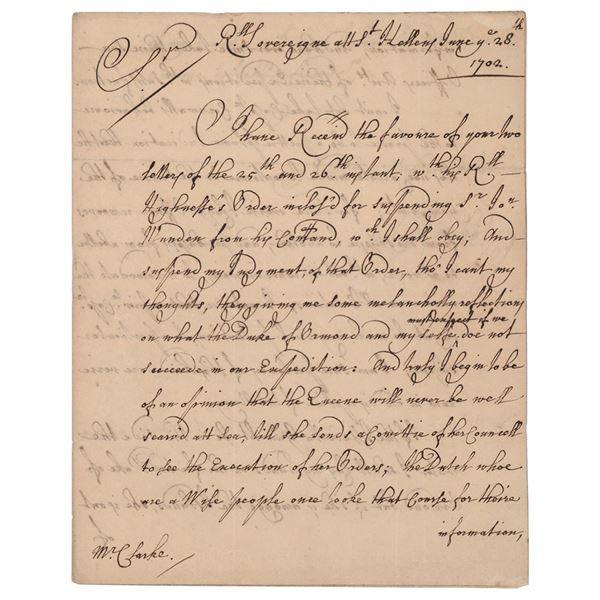 R.ll Sovereigne att S.t Hellens June y.e 28.th
1702.
S.r
I have Receivd the favoure of your two
letters of the 25.th and 26.th instant, w.th his R.ll
Highnesse's Order inclos'd for suspending S.r Jo.n
Mundon from his Comand, w.ch I shall obey, And
suspend my Judgment, of that Order, tho' I cant my
thoughts, they giving me some melancholly reflections
on what the Duke of Ormond and my selfe must expect if we doe not
succeede in our Expedition: And truly I begin to be
of an opinion that the Queene will never be well
searvd att Sea, till she sends a Comittie of her Councell
to see the Execution of her Orders; the Dutch whoe
are a Wise people once tooke that Course for theire
information,
M.r Clarke.